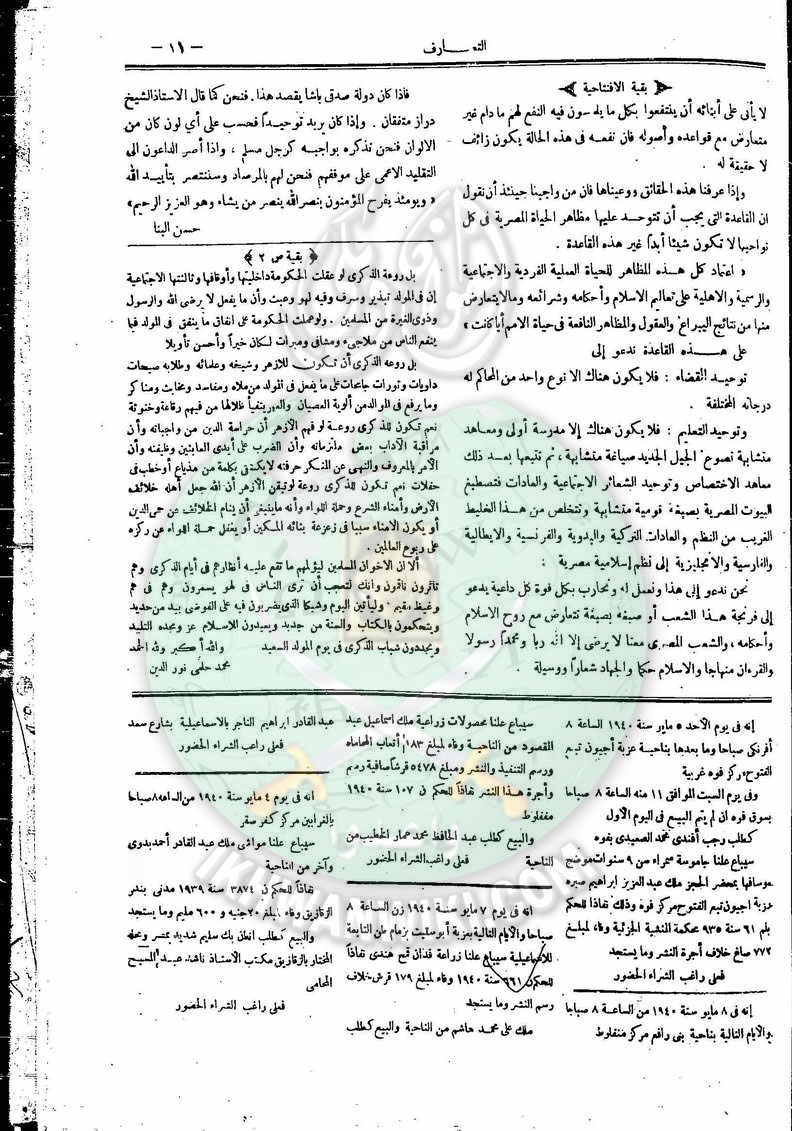 التعارف
— ١١ —
﴿ بقية الافتتاحية ﴾
لا يأبى على أبنائه أن ينتفعوا بكل ما يلمسون فيه النفع لهم ما دام غير
متعارض مع قواعده وأصوله فان نفعه فى هذه الحالة يكون زائف
لا حقيقة له .
وإذا عرفنا هذه الحقائق ووعيناها فان من واجبنا حينئذ أن نقول
ان القاعدة التى يجب أن تتوحد عليها مظاهر الحياة المصرية فى كل
نواحيها لا تكون شيئا أبداً غير هذه القاعدة .
« اعتماد كل هذه المظاهر للحياة العملية الفردية والاجتماعية
والرسمية والاهلية على تعاليم الاسلام وأحكامه وشرائعه ومالايتعارض
منها من نتائج اليراع والعقول والمظاهر النافعة فى حياة الامم أيا كانت »
على هذه القاعدة ندعو إلى
توحيد القضاء : فلا يكون هناك الا نوع واحد من المحاكم له
درجاته المختلفة .
وتوحيد التعليم : فلا يكون هناك إلا مدرسة أولى ومعاهد
متشابهة تصوغ الجيل الجديد صياغة متشابهة ، ثم تتبعها بعد ذلك
معاهد الاختصاص وتوحيد الشعائر الاجتماعية والعادات فتصطبغ
البيوت المصرية بصبغة قومية متشابهة وتتخلص من هذا الخليط
الغريب من النظم والعادات التركية والبدوية والفرنسية والايطالية
والفارسية والانجليزية إلى نظم إسلامية مصرية :
نحن ندعو إلى هذا ونعمل له ونحارب بكل قوة كل داعية يدعو
إلى فرنجة هذا الشعب أو صبغه بصبغة تتعارض مع روح الاسلام
وأحكامه ، والشعب المصرى معنا لا يرضى إلا الله ربا ومحمداً رسولا
والقرءان منهاجا والاسلام حكما والجهاد شعاراً ووسيلة .
فاذا كان دولة صدقى باشا يقصد هذا . فنحن كما قال الاستاذ الشيخ
دراز متفقان . وإذا كان يريد توحيداً فحسب على أي لون كان من
الالوان فنحن نذكره بواجبه كرجل مسلم ، واذا أصر الداعون الى
التقليد الاعمى على موقفهم فنحن لهم بالمرصاد وسننتصر بتأييد الله
« ويومئذ يفرح المؤمنون بنصر الله ينصر من يشاء وهو العزيز الرحيم »
حسن البنا
﴿ بقية ص ٢ ﴾
بل روعة الذكرى لو عقلت الحكومة داخليتها وأوقافها وثالثتها الاجتماعية
إن فى المولد تبذير وسرف وفيه لهو وعبث وأن ما يفعل لا يرضى الله والرسول
وذوى الغيرة من المسلمين . ولو عملت الحكومة على انفاق ما ينفق فى المولد فيما
ينفع الناس من ملاجىء ومشافى ومبرات لكان خيراً وأحسن تأويلا
بل روعة الذكرى أن تكون للازهر وشيخه وعلمائه وطلابه صيحات
داويات وثورات جامحات على ما يفعل فى المولد من ملاه ومفاسد ومخابث ومناكر
وما يرفع فى الموالد من ألوية العصيان يتفيأ ظلالها من فيهم رقاعة وخنوثة
نعم تكون للذكرى روعة لو فهم الأزهر أن حراسة الدين من واجباته وأن
مراقبة الآداب بعض ملتزماته وأن الضرب على أيدى العابثين وظيفته وأن
الأمر بالمعروف والنهى عن المنكر حرفته لا يكتفى بكلمة من مذياع أو خطب فى
حفلات نعم تكون للذكرى روعة لو تيقن الأزهر أن الله جعل أهله خلائف
الأرض وأمناء الشرع وحملة اللواء وأنه ما ينبغى أن ينام الخلائف عن حمى الدين
أو يكون الامناء سببا فى زعزعة بنائه المسكين أو يغفل حملة اللواء عن ركزه
على ربوع العالمين .
ألا ان الاخوان المسلمين ليؤلمهم ما تقع عليه أنظارهم فى أيام الذكرى وهم
ثائرون ناقمون وانك لتعجب أن ترى الناس فى لهو يسمرون وهم فى هم
وغيظ مقيم . وليأتين اليوم وشيكا الذى يضربون فيه على الفوضى بيد من حديد
ويتحكمون بالكتاب والسنة من جديد ويعيدون للاسلام عز ومجده التليد
ويجددون شباب الذكرى فى يوم المولد السعيد والله أكبر ولله الحمد
محمد حلمى نور الدين
إنه فى يوم الأحد ٥ مايو سنة ١٩٤٠ الساعة ٨
أفرنكى صباحا وما بعدها بناحية عزبة أجيون تبع
الفتوح مركز فوه غربية
وفى يوم السبت الموافق ١١ منه الساعة ٨ صباحا
بسوق فوه ان لم يتم البيع فى اليوم الأول
كطلب رجب أفندى محمد الصعيدى بفوه
سيباع علنا جاموسة سمراء سن ٩ سنوات موضح
أوصافها بمحضر الحجز ملك عبد العزيز ابراهيم صيره
عزبة اجيون تبع الفتوح مركز فوه وذلك نفاذا للحكم
٦١ سنة ٩٣٥ محكمة الجزئية وفاء لمبلغ
٧٧٢ صاغ خلاف أجرة النشر وما يستجد
فعلى راغب الشراء الحضور
إنه فى ٨ مايو سنة ١٩٤٠ من الساعة ٨ صباحا
والايام التالية بناحية بنى رافع مركز منفلوط
سيباع علنا محصولات زراعية ملك اسماعيل عبد
المقصود من الناحية وفاء لمبلغ ١٨٣ أتعاب المحاماه
ورسم التنفيذ والنشر ومبلغ ٥٤٧٨ قرشا صافية رسم
وأجرة هذا النشر نفاذاً للحكم ن ١٠٧ سنة ١٩٤٠
منفلوط
والبيع كطلب عبد الحافظ محمد عمار الخطيب من
الناحية فعلى راغب الشراء الحضور
انه فى يوم ٧ مايو سنة ١٩٤٠ من الساعة ٨
صباحا والايام التالية بعزبة أبو سليت بزمام التابعة
للاسماعيلية سيباع علنا زراعة فدان قمح هندى نفاذاً
للحكم ن ٦٦١ سنة ١٩٤٠ وفاء لمبلغ ١٧٩ قرش خلاف
رسم النشر وما يستجد
ملك على محمد هاشم من الناحية والبيع كطلب
عبد القادر ابراهيم التاجر بالاسماعيلية بشارع سعد
فعلى راغب الشراء الحضور
انه فى يوم ٤ مايو سنة ١٩٤٠ من الساعه ٨ صباحا
بالفرايين مركز كفر صقر
سيباع علنا مواشى ملك عبد القادر أحمد بدوى
وآخر من الناحية
نفاذاً للحكم ن ٣٨٧٤ سنة ١٩٣٩ مدنى بندر
الزقازيق وفاء لمبلغ ٢٠ جنيه و ٦٠٠ مليم وما يستجد
والبيع كطلب بك سليم شديد بمصر ومحله
المختار بالزقازيق مكتب الاستاذ ناشد عبد المسيح
المحامى
فعلى راغب الشراء الحضور
IKHWANWIKI.COM
وأعدوا